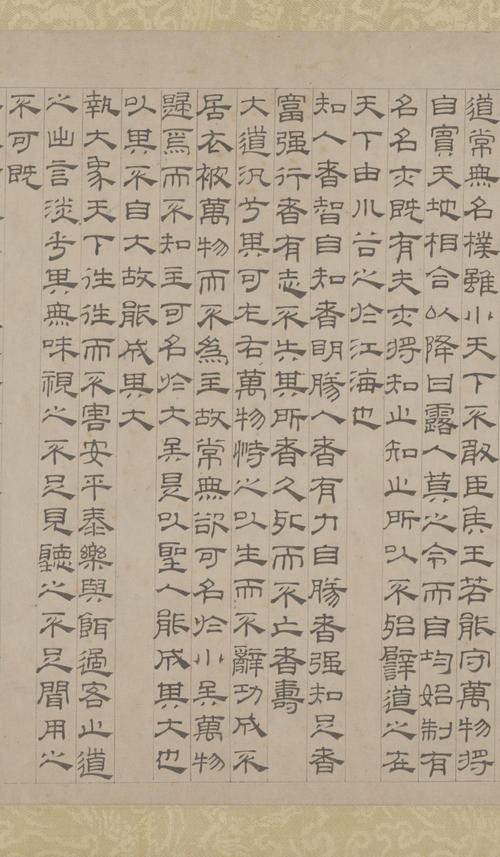 道常無名樸雖小天下不敢臣矦王若能守萬物將
自賓天地相合以降甘露人莫之令而自均始制有
名名亦既有夫亦將知止知止所以不殆譬道之在
天下由川谷之於江海也
知人者智自知者明勝人者有力自勝者强知足者
富强行者有志不失其所者久死而不亡者壽
大道汎兮其可左右萬物恃之以生而不辭功成不
居衣被萬物而不為主故常無欲可名於小矣萬物
歸焉而不知主可名於大矣是以聖人能成其大也
以其不自大故能成其大
執大象天下往往而不害安平泰樂與餌過客止道
之出言淡乎其無味視之不足見聽之不足聞用之
不可既